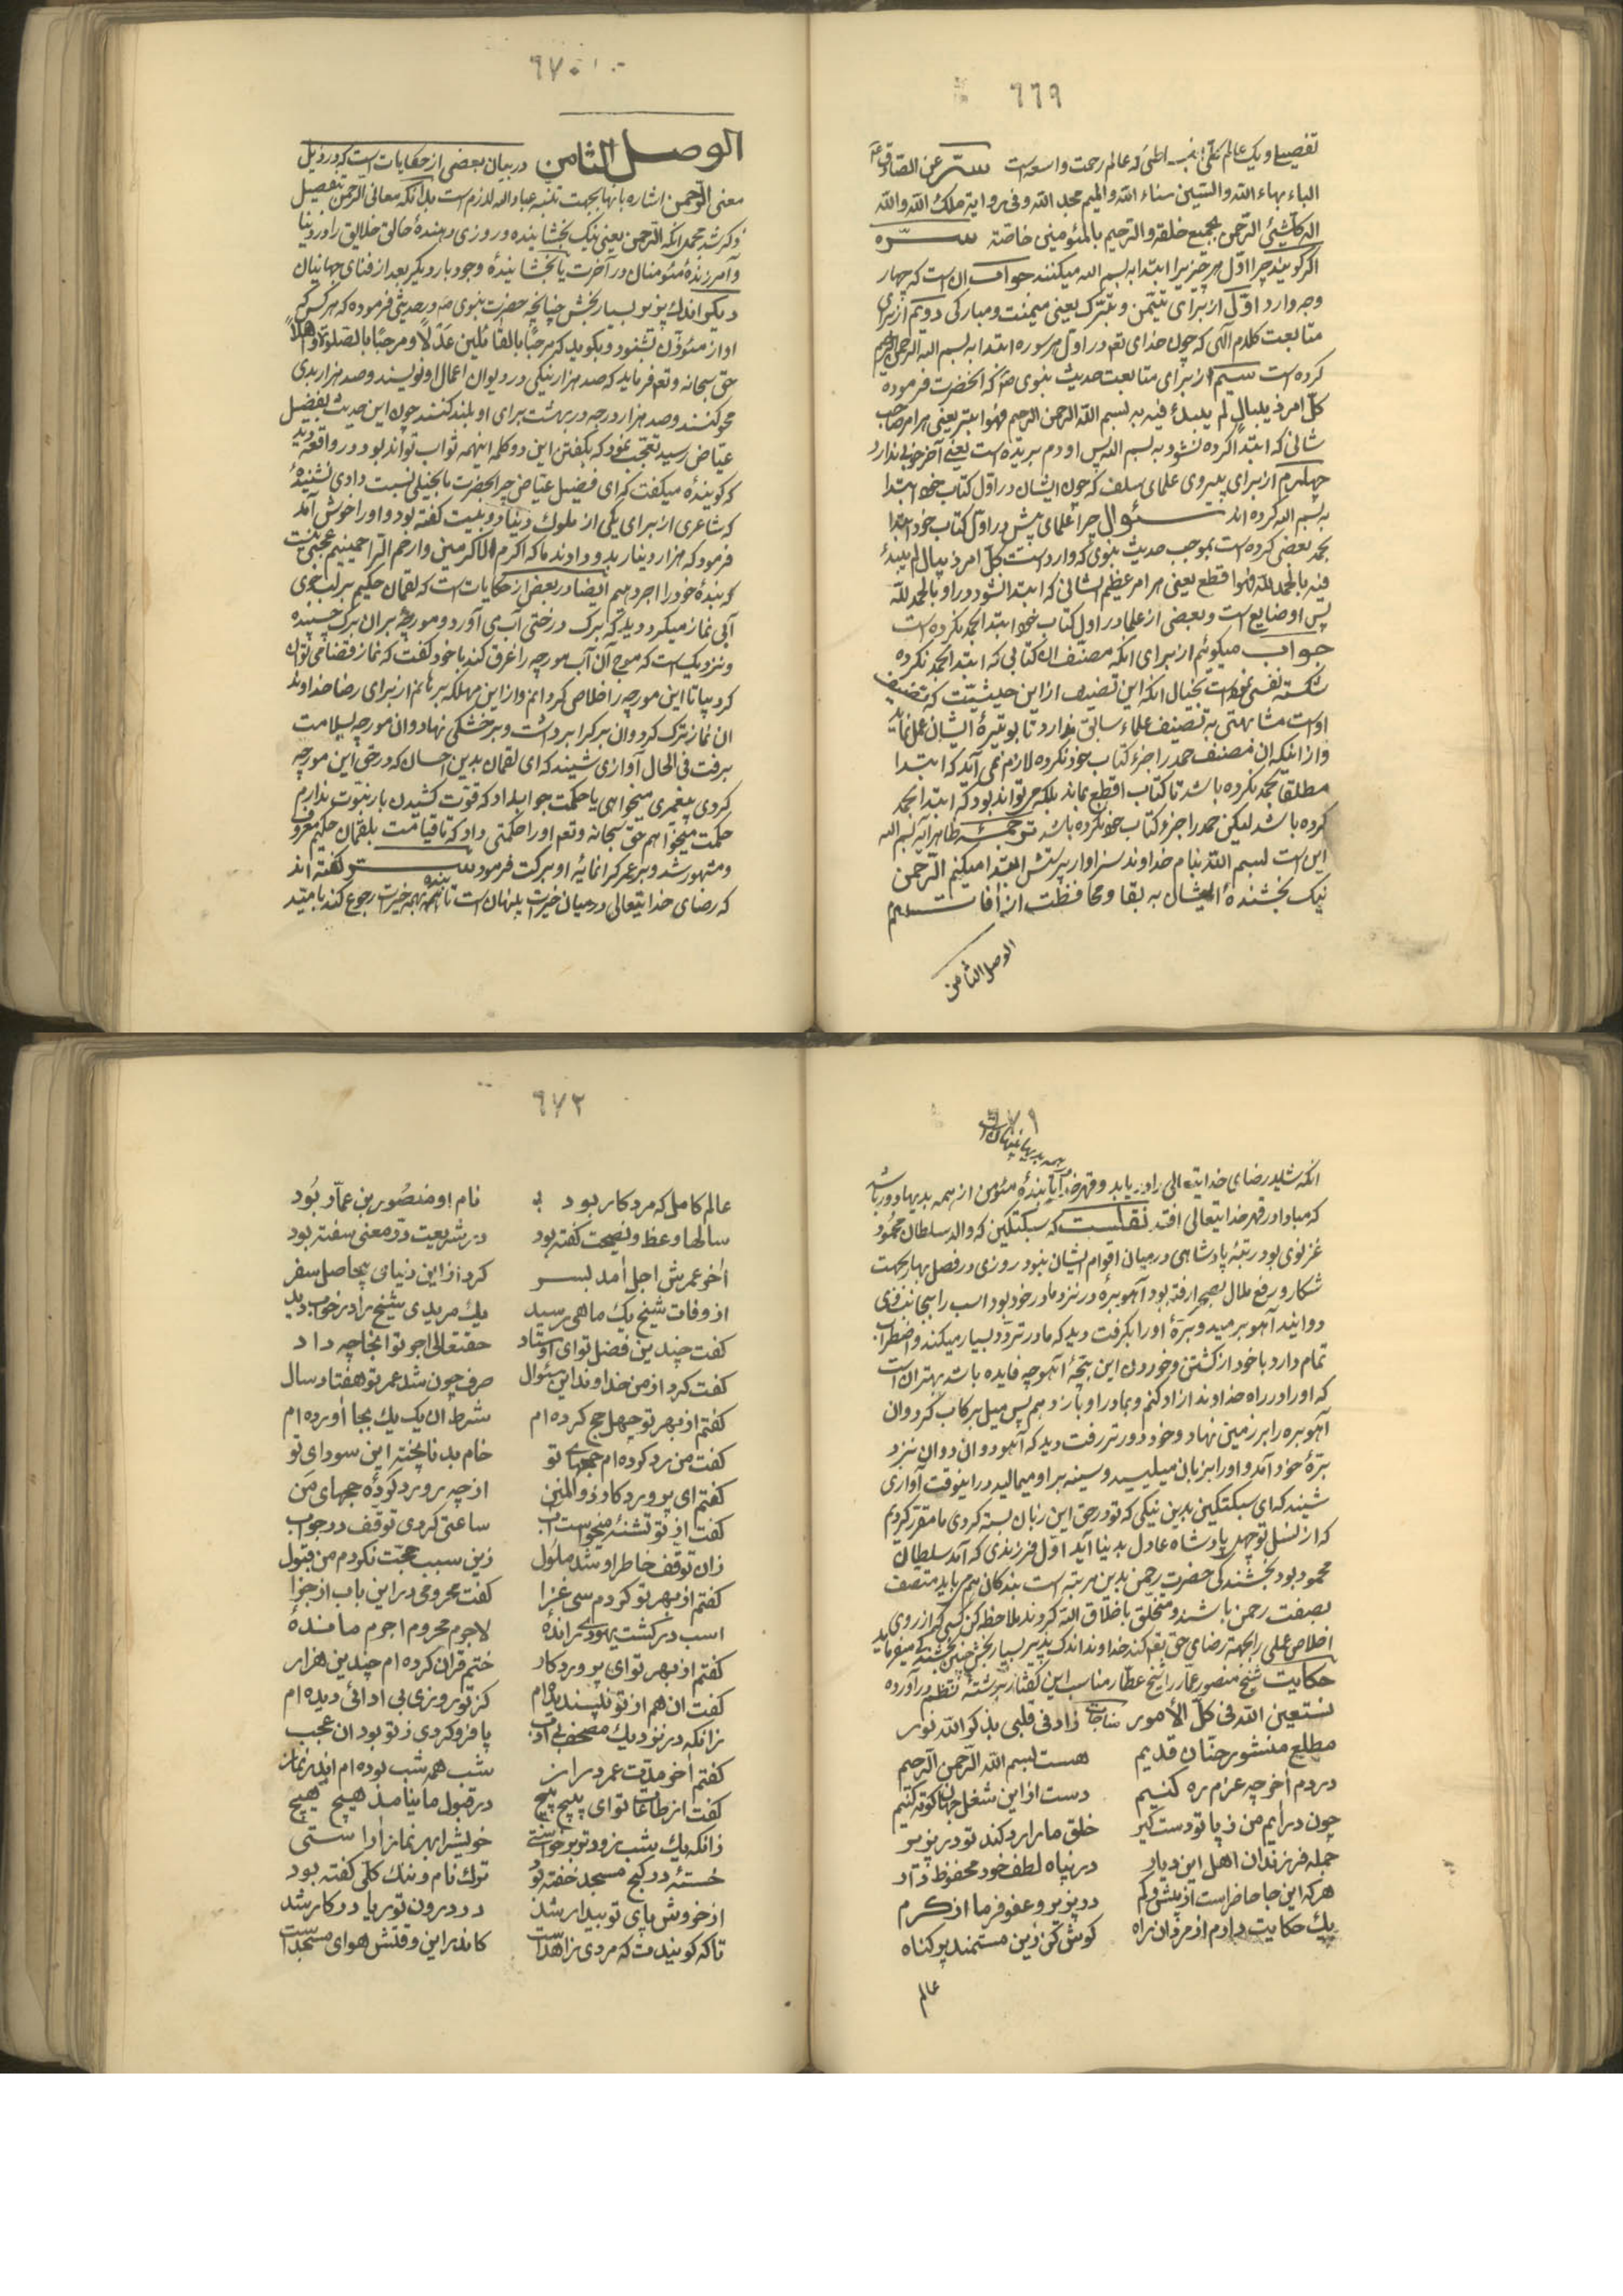 ٦٦٩
تفصیلی و یک عالم عالم رحمت واسعه است سرّ عن الصادق
الباء بهاء الله والسّین سناء الله والمیم مجد الله وفی روایة ملک الله والله
اله کلّ شیئ الرّحمن بجمیع خلقه والرّحیم بالمؤمنین خاصّة
اگر گویند چرا اوّل هر چیز را ابتدا به بسم الله میکنند جواب ان است که چهار
وجه دارد اوّل از برای تیمّن و تبّرک یعنی میمنت و مبارکی دویم از برای
متابعت کلام آلهی که چون خدای تعم در اول هر سوره ابتدا به بسم الله الرحمن الرحیم
کرده است سیم از برای متابعت حدیث نبوی ص که انحضرت فرموده
کلّ امر ذیبال لم یبدأ فیه به بسم الله الرحمن الرحیم فهوا ابتر یعنی هر امر صاحب
شانی که ابتدا کرده نشود به بسم الله پس او دم بریده است یعنی آخر خوبی ندارد
چهارم از برای پیروی علمای سلف که چون ایشان در اول کتاب خود ابتدا
به بسم الله کرده اند سئوال چرا علمای پیش در اول کتاب خود ابتدا
بحمد بعضی کرده است بموجب حدیث نبوی که وارد است کلّ امر ذیبال لم یبدأ
فیه بالحمد لله فهوا قطع یعنی هر امر عظیم الشانی که ابتدا نشود در او بالحمد لله
پس او ضایع است و بعضی از علما در اول کتاب خود ابتدا بحمد نکرده است
جواب میگوئیم از برای انکه مصنّف ان کتابی که ابتدا بحمد نکرده
شکسته نفسی نموده است بخیال انکه این تصنیف از این حیثیّت که تصنیف
اوست مشابهتی به تصنیف علماء سابق ندارد تا بوتیرهٔ ایشان عمل نماید
و از اینکه ان مصنف حمد را جزء کتاب خود نکرده لازم نمی آید که ابتدا
مطلقا بحمد نکرده باشد تا کتاب اقطع بماند بلکه میتواند بود که ابتدا بحمد
کرده باشد لیکن حمد را جزو کتاب خود نکرده باشد ترجمه ظاهر آیه بسم الله
این است بسم الله بنام خداوند سزاوار پرستش ابتدا میکنم الرّحمن
نیک بخشندهٔ ایشان به بقا و محافظت از آفات
الوصل الثامن
٦٧٠
الوصل الثامن در بیان بعضی از حکایات است که در ذیل
معنی الرّحمن اشاره بانها بجهت تنبیه عباد الله لازم است بدانکه معانی الرحمن تفصیل
ذکر شد مجمل انکه الرّحمن یعنی نیک بخشاینده و روزی دهندهٔ خالق خلایق را در دنیا
و آمرزندهٔ مئومنان در آخرت یا بخشایندهٔ وجود بار دیگر بعد از فنای جهانیان
دیکو اندک پذیر بسیار بخش چنانچه حضرت نبوی ص در حدیثی فرموده که هر کس که
اواز مئوذّن بشنود و بگوید که مرحبًا بالقائلین عدلًا و مرحبًا بالصلوة و اهلًا
حق سبحانه و تعم فرماید که صد هزار نیکی در دیوان اعمال او نویسند و صد هزار بدی
محو کنند و صد هزار درجه در بهشت برای او بلند کنند چون این حدیث بفضیل
عیاض رسید تعجّب نمود که بگفتن این دو کلمه اینهمه ثواب تواند بود در واقعه دید
که گوینده میگفت که ای فضیل عیاض چرا بحضرت ما بخیلی نسبت دادی نشنیدهٔ
که شاعری از برای یکی از ملوک دنیا دو بیت گفته بود و او را خوش آمد
فرمود که هزار دینار بدو دادند ما که اکرم الاکرمین و ارحم الرّاحمینیم عجب نیست
که بندهٔ خود را اجر دهیم ایضا در بعض از حکایات است که لقمان حکیم بر لب جوی
آبی نماز میکرد دید که برک درختی آب می آورد و مورچهٔ بر ان برک چسپیده
و نزدیک است که موج آن آب مورچه را غرق کند با خود گفت که نماز قضا می توان
کرد بیا تا این مورچه را خلاص گردانم و از این مهلکه برهانم از برای رضا خداوند
ان نماز ترک کرد و ان برک را برداشت و بر خشکی نهاد و ان مورچه بسلامت
برفت فی الحال آوازی شنیند که ای لقمان بدین احسان که در حق این مورچه
کردی پیغمبری میخواهی یا حکمت جواب داد که قوّت کشیدن بار نبوّت ندارم
حکمت میخواهم حق سبحانه و تعم او را حکمتی داد که تا قیامت بلقمان حکیم معروف
و مشهور شد و بر عمر گرانمایهٔ او برکت فرمود گفته اند
که رضای خدایتعالی در میان خیرت پنهان است تا بنده همه بهمه خیرت رجوع کند بامید
٦٧١
همه بدیها پنهان است
انکه شاید رضای خدایتعالی را دریابد و قهر خدا بندهٔ مئومن از همه بدیها دور باشد
که مبادا در قهر خدایتعالی افتد نقلست که سبکتکین که والد سلطان محمود
غزنوی بود رتبهٔ پادشاهی در میان اقوام ایشان نبود روزی در فصل بهار بجهت
شکار و رفع ملال بصحرا رفته بود آهو برهٔ در نزد مادر خود بود اسب را بجانب وی
دوانید آهو برمید و برهٔ او را بگرفت دید که مادر تردّد بسیار میکند و اضطراب
تمام دارد با خود از کشتن و خوردن این بچهٔ آهو چه فایده باشد بهتر ان است
که او را در راه خداوند ازاد کنم و بمادر او باز دهم پس میل برکاب کرد و ان
آهو بره را بر زمین نهاد و خود دورتر رفت دید که آهو دوان دوان نزد
برهٔ خود آمد و او را بزبان میلیسید و سینه بر او میمالید در اینوقت آوازی
شنیند که ای سبکتکین بدین نیکی که تو در حق این زبان بسته کردی ما مقرّر کردیم
که از نسل تو چهل پادشاه عادل بدنیا آید اوّل فرزندی که آمد سلطان
محمود بود بخشندگی حضرت رحمن بدین مرتبه است بندگان هم باید متصف
بصفت رحمن باشند و متخلّق باخلاق الله گردند ملاحظه کن کسی که از روی
اخلاص عملی را بجهة رضای حق تعم کند خداوند اندک پذیر بسیار بخش چنین بخششی میفرماید
حکایت شیخ منصور عمّار را شیخ عطّار مناسب این گفتار برشتهٔ نظم در آورده
نستعین الله فی کلّ الأمور مناجات زاد فی قلبی بذکر الله نور
مطلع منشور حنّان قدیم هست بسم الله الرّحمن الرّحیم
در دم اخر چه عزم ره کنیم دست از این شغل جهان کوته کنیم
چون در ایم من ز پا تو دست گیر خلق ما را رد کند تو در پذیر
جمله فرزندان اهل این دیار در پناه لطف خود محفوظ دار
هر که این جا حاضر است از بیش و کم در پذیر و عفو فرما از کرم
یک حکایت دارم از مردان راه گوش کن زین مستمند پر گناه
عالم
٦٧٢
عالم کامل که مرد کار بود نام او منصُور بن عمّار بُود
سالها وعظ و نصیحت گفته بود در شریعت درّ معنی سفته بود
اخر عمرش اجل امد بسر کرد از این دنیای بیحاصل سفر
از وفات شیخ یک ماهی رسید یک مریدی شیخ را در خواب دید
گفت چندین فضل تو ای اوستاد حقتعالی اجر تو انجا چه داد
گفت کرد از من خداوند این سئوال صرف چون شد عمر تو هفتاد سال
گفتم از بهر تو چهل حج کرده ام شرط ان یک یک بجا اورده ام
گفت من رد کرده ام حجهای تو خام بد ناپخته این سودای تو
گفتم ای پرورد کار ذو المنن از چه رو رد کردهٔ حجهای من
گفت از تو تشنهٔ میخواست آب ساعتی کردی توقف در جواب
زان توقف خاطر او شد ملُول زین سبب حجّت نکردم من قبول
گفتم از بهر تو کردم سی غزا گفت محرومی در این باب از جزا
اسب در کشت یهودی راندهٔ لاجرم محروم اجرم ماندهٔ
گفتم از بهر تو ای پرورد کار ختم قران کرده ام چندین هزار
گفت ان هم از تو نپسندیده ام کز تو روزی بی ادائی دیده ام
زانکه در نزدیک مصحف بی ادب پا فرو کردی ز تو بود ان عجب
گفتم اخر مدّت عمر دراز شب همه شب بوده ام اندر نماز
گفت از طاعات تو ای پیچ پیچ در قبول ما نیامد هیچ هیچ
زانکه یک شب زود تو برخواستی خویش را بهر نماز اراستی
خستهٔ در کنج مسجد خفته بود ترک نام و ننک کلّی گفته بود
از خروش پای تو بیدار شد در درون تو ریا در کار شد
تا که گویندت که مردی زاهد است کاندر این وقتش هوای مسجد است